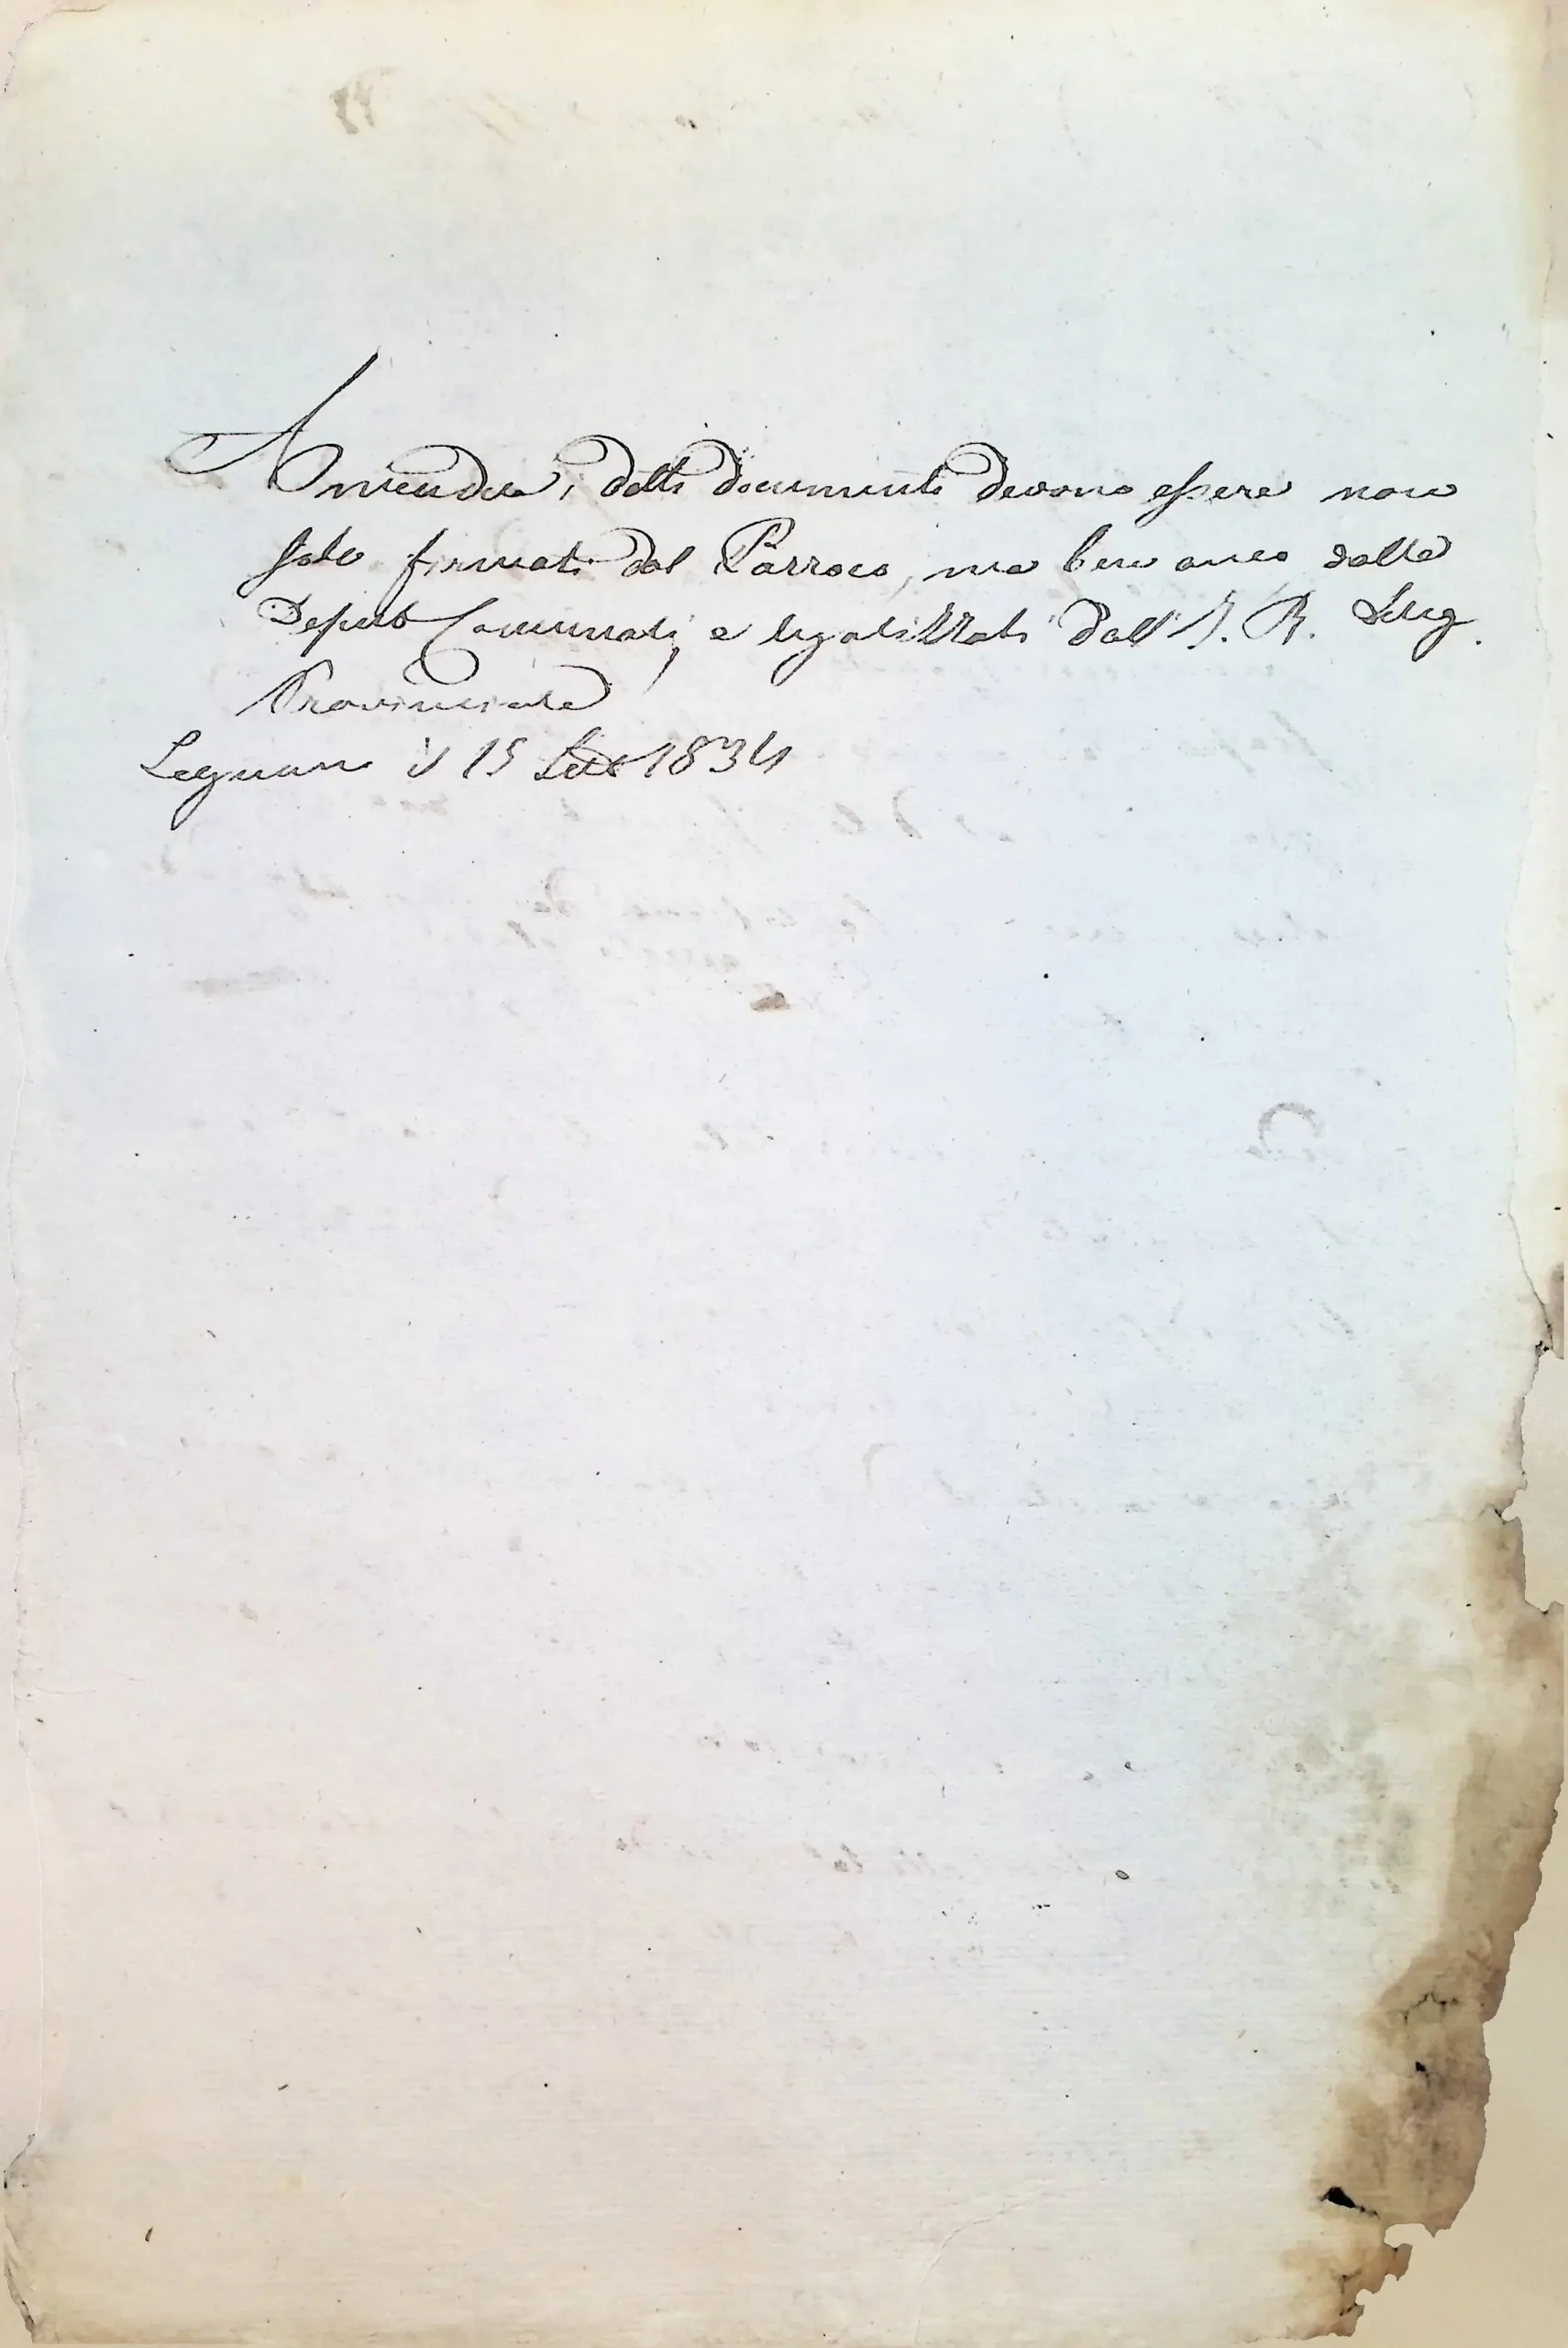 Amendue i detti documenti devono essere non
solo firmati dal Parroco, ma ben anco dalla
Deput Comunali, e legalizzati dall' I. R. Deleg.
Provinciale
Legnano il 15 Sett 1834